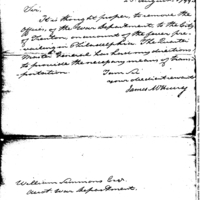 25 August, 1799
Sir,
It is thought proper to remove the
Offices, of the War Department, to the City
of Trenton, on account of the fever pre-
vailing in Philadelphia. The Quarter
Master General has had my directions
to provide the necessary means of trans-
portation.
I am Sir
your obedient servant
James McHenry
William Simmons Esqr
Acct. War Department.